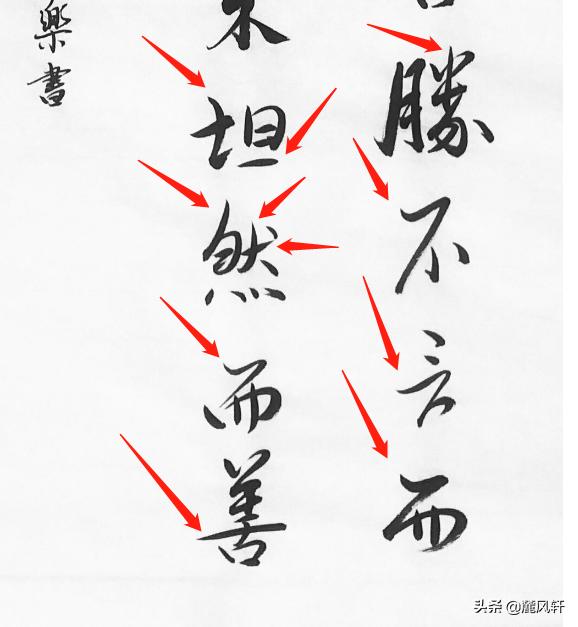 勝不言而
坦然而善
樂書
头条 @麓风轩